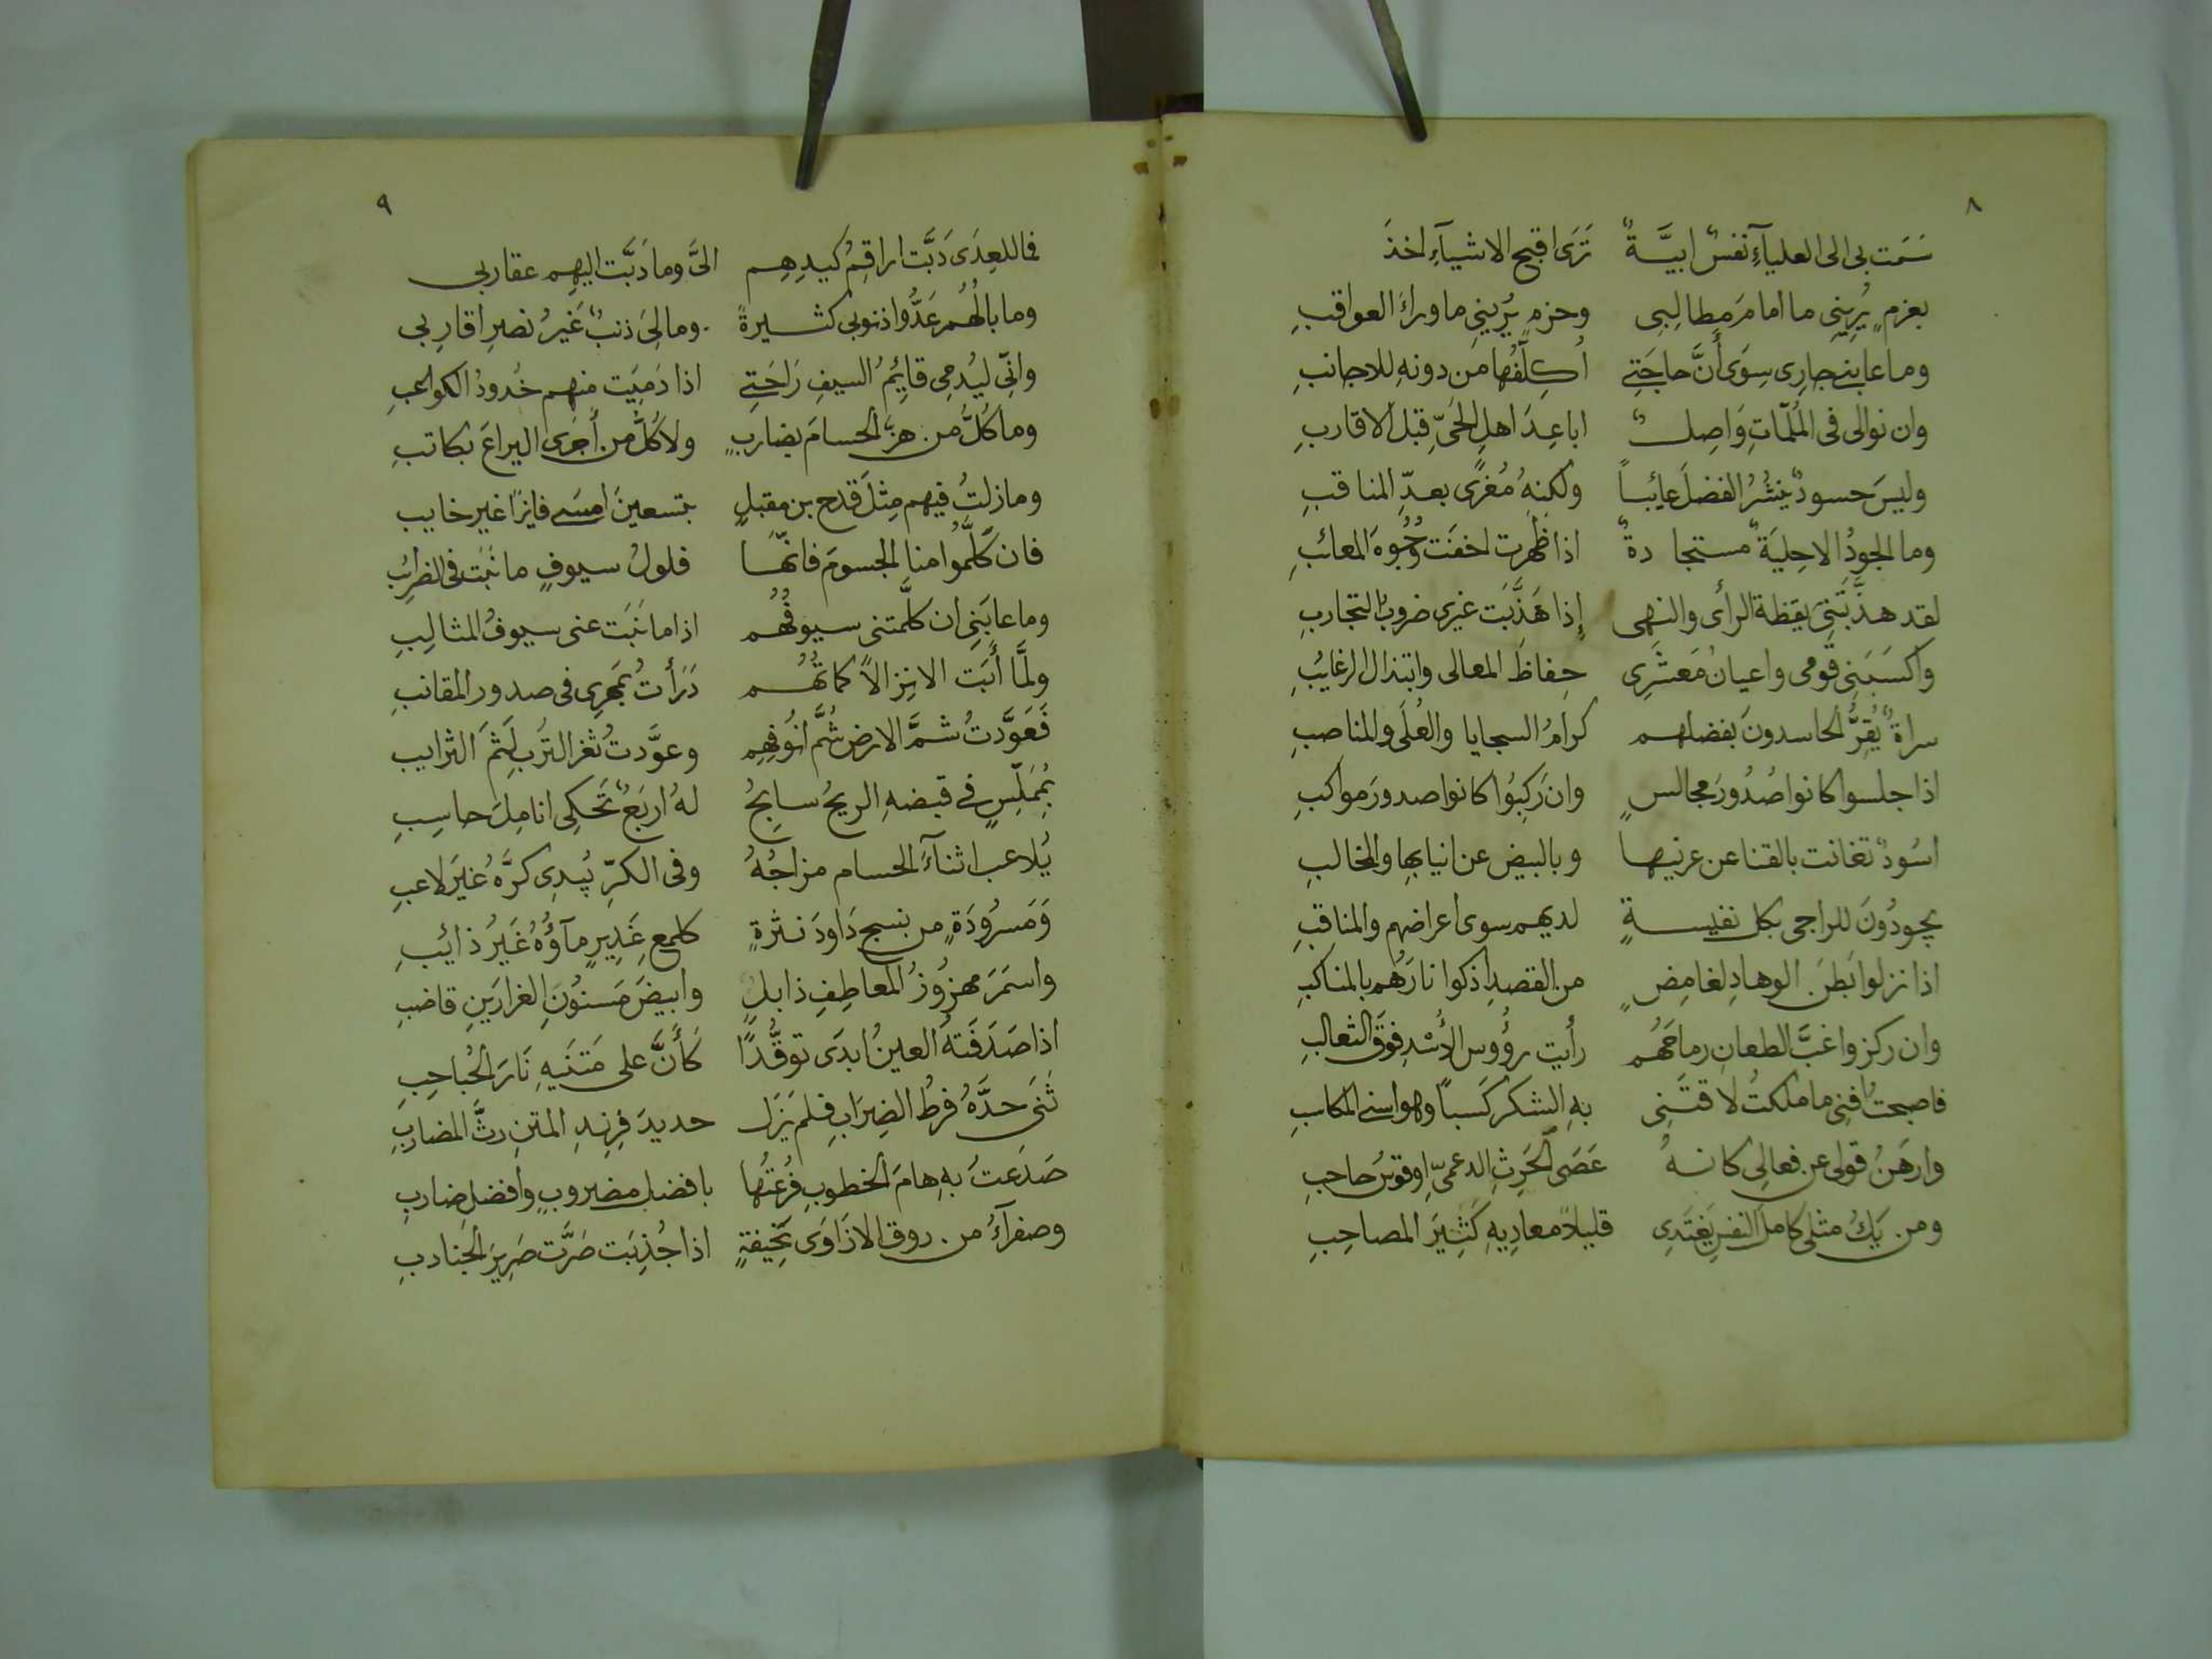 ٨
سَمَت بى الى العلياءِ نفسٌ ابيَّةٌ ترَى اقبح الاشيآءِ اخذَ
بعزمٍ يُرِينِى ما امامَ مطالِبى وحزمٍ يُرِينِى ما وراءَ العواقبِ
وما عابنى جارِى سِوَى أَنَّ حاجَتِى أُكلِّفُها من دونهِ للاجانبِ
وان نوالى فى المُلمّاتِ وَاصِلٌ اباعِدَ اهلِ الحَىِّ قبل الاقاربِ
وليسَ حسودٌ ينشُرُ الفضلَ عايُباً ولكنهُ مُغرًى بعدِّ المناقبِ
وما الجودُ الا حِليَةٌ مستجادةٌ اذا ظهرت اخفَت وُجُوهَ المعائبِ
لقد هذَّبَتنِى يقظة الرأى والنهى إذا هَذَّبَت غيرى ضروبُ التجاربِ
واكسَبَنِى قومى واعيانُ مَعشَرِى حِفاظَ المعالى وابتذال الرغايُبِ
سراةٌ يُقِرُّ الحاسدونَ بفضلهم كرامُ السجايا والعُلَى والمناصبِ
اذا جلسوا كانوا صُدُورَ مجالسٍ وان رَكِبُوا كانوا صدورَ مواكبِ
اسُودٌ تغانت بالقنا عن عرنيها وبالبيض عن انيابها والمخالبِ
يجودُونَ للراجى بكل نفيسةٍ لديهم سوى اعراضهم والمناقبِ
اذا نزلوا بَطنَ الوهادِ لغامِضٍ من القصدِ اذكوا نارَهُم بالمناكبِ
وان ركزوا غبَّ الطعانِ رماحَهُم رأيت رؤُوس الأُسْدِ فوقَ الثعالبِ
فاصبحتُ افنى ما ملكتُ لاقتَنِى بهِ الشكر كَسباً وهو اسنى المكاسبِ
وارهَنُ قولى عن فعالِى كانهُ عَصَى الحَرِثِ الدعمىِّ او قوسُ حاجبِ
ومن يَكُ مثلى كاملَ النفسِ يَغتَدِى قليلاً معادِيهِ كَثِيرَ المصاحِبِ
٩
فما للعِدَى دَبَّت اراقِمُ كيدِهِم الىَّ وما دَبَّت اليهِم عقاربى
وما بالُهُم عَدُّوا ذنوبى كثيرةً وما لِىَ ذنبٌ غيرُ نصرِ اقارِبى
وانّى ليُدمِى قائِمُ السيفِ رَاحَتِى اذا دَمِيَت منهم خُدودُ الكواعبِ
وما كُلُّ من هزَّ الحسامَ بضاربٍ ولا كُلُّ من أَجرَى اليراعَ بكاتبِ
وما زلتُ فيهم مِثلَ قدح بن مقبلٍ بتسعينَ امسَى فايزًا غير خايب
فان كَلَّمُوا منا الجسومَ فانَّها فلولُ سيوفٍ ما نَبَت فى الضرايُبِ
وما عابَنِى ان كلَّمتنى سيوفُهُم اذا ما نَبَت عنى سيوفُ المثالِبِ
ولَمَّا أَبَت الا نِزالاً كماتُهُم دَرَأتُ بمُهرِى فى صدور المقانبِ
فَعَوَّدتُ شمَّ الارض شُمَّ انُوفِهِم وعوَّدتُ ثغرَ التُربِ لَثمَ الترايب
بُمملَّسٍ فى قبضهِ الريحُ سابحُ لهُ اربَعٌ تَحكِى انامِلَ حاسِبِ
يُلاعب اثناءَ الحسام مزاجُهُ وفى الكرِّ يُبدِى كرَّهُ غيرَ لاعبِ
وَمَسرُودَةٍ من نسج دَاودَ نثرةٍ كلمع غَدِيرٍ مآؤُهُ غَيرُ ذائبِ
واسمَرَ مهزُوزُ المعاطِفِ ذابلٍ وابيضَ مَسنُونِ الغرارَينِ قاضبِ
اذا صَدَفَتهُ العينُ ابدَى توقُّدًا كأَنَّ على مَتنَيهِ نَارَ الحُباحِبِ
ثنَى حدَّهُ فرطُ الضِرَابِ فلم يَزَل حديدَ فِرِندِ المتنِ رثَّ المضاربِ
صَدَعتُ بهِ هامَ الخطوبِ فرُعتُها بافضل مضروبٍ وافضل ضاربِ
وصفرآءُ من روق الاذَاوَى نَحِيفةٍ اذا جُذِبَت صَرَّت صَرِيرَ الجَنادبِ